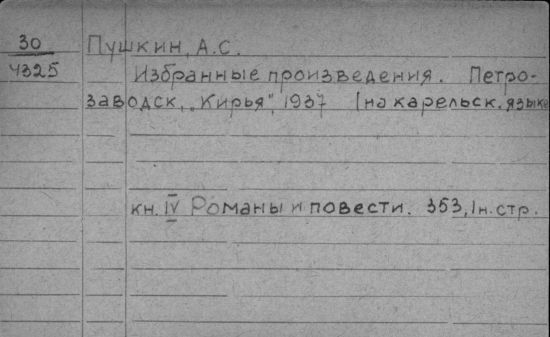 30 Пушкин, А.С.
4325 Избранные произведения. Петро-
заводск, „Кирья", 1937 [на карельск. языке
кн. IV Романы и повести. 353, 1 н. стр.